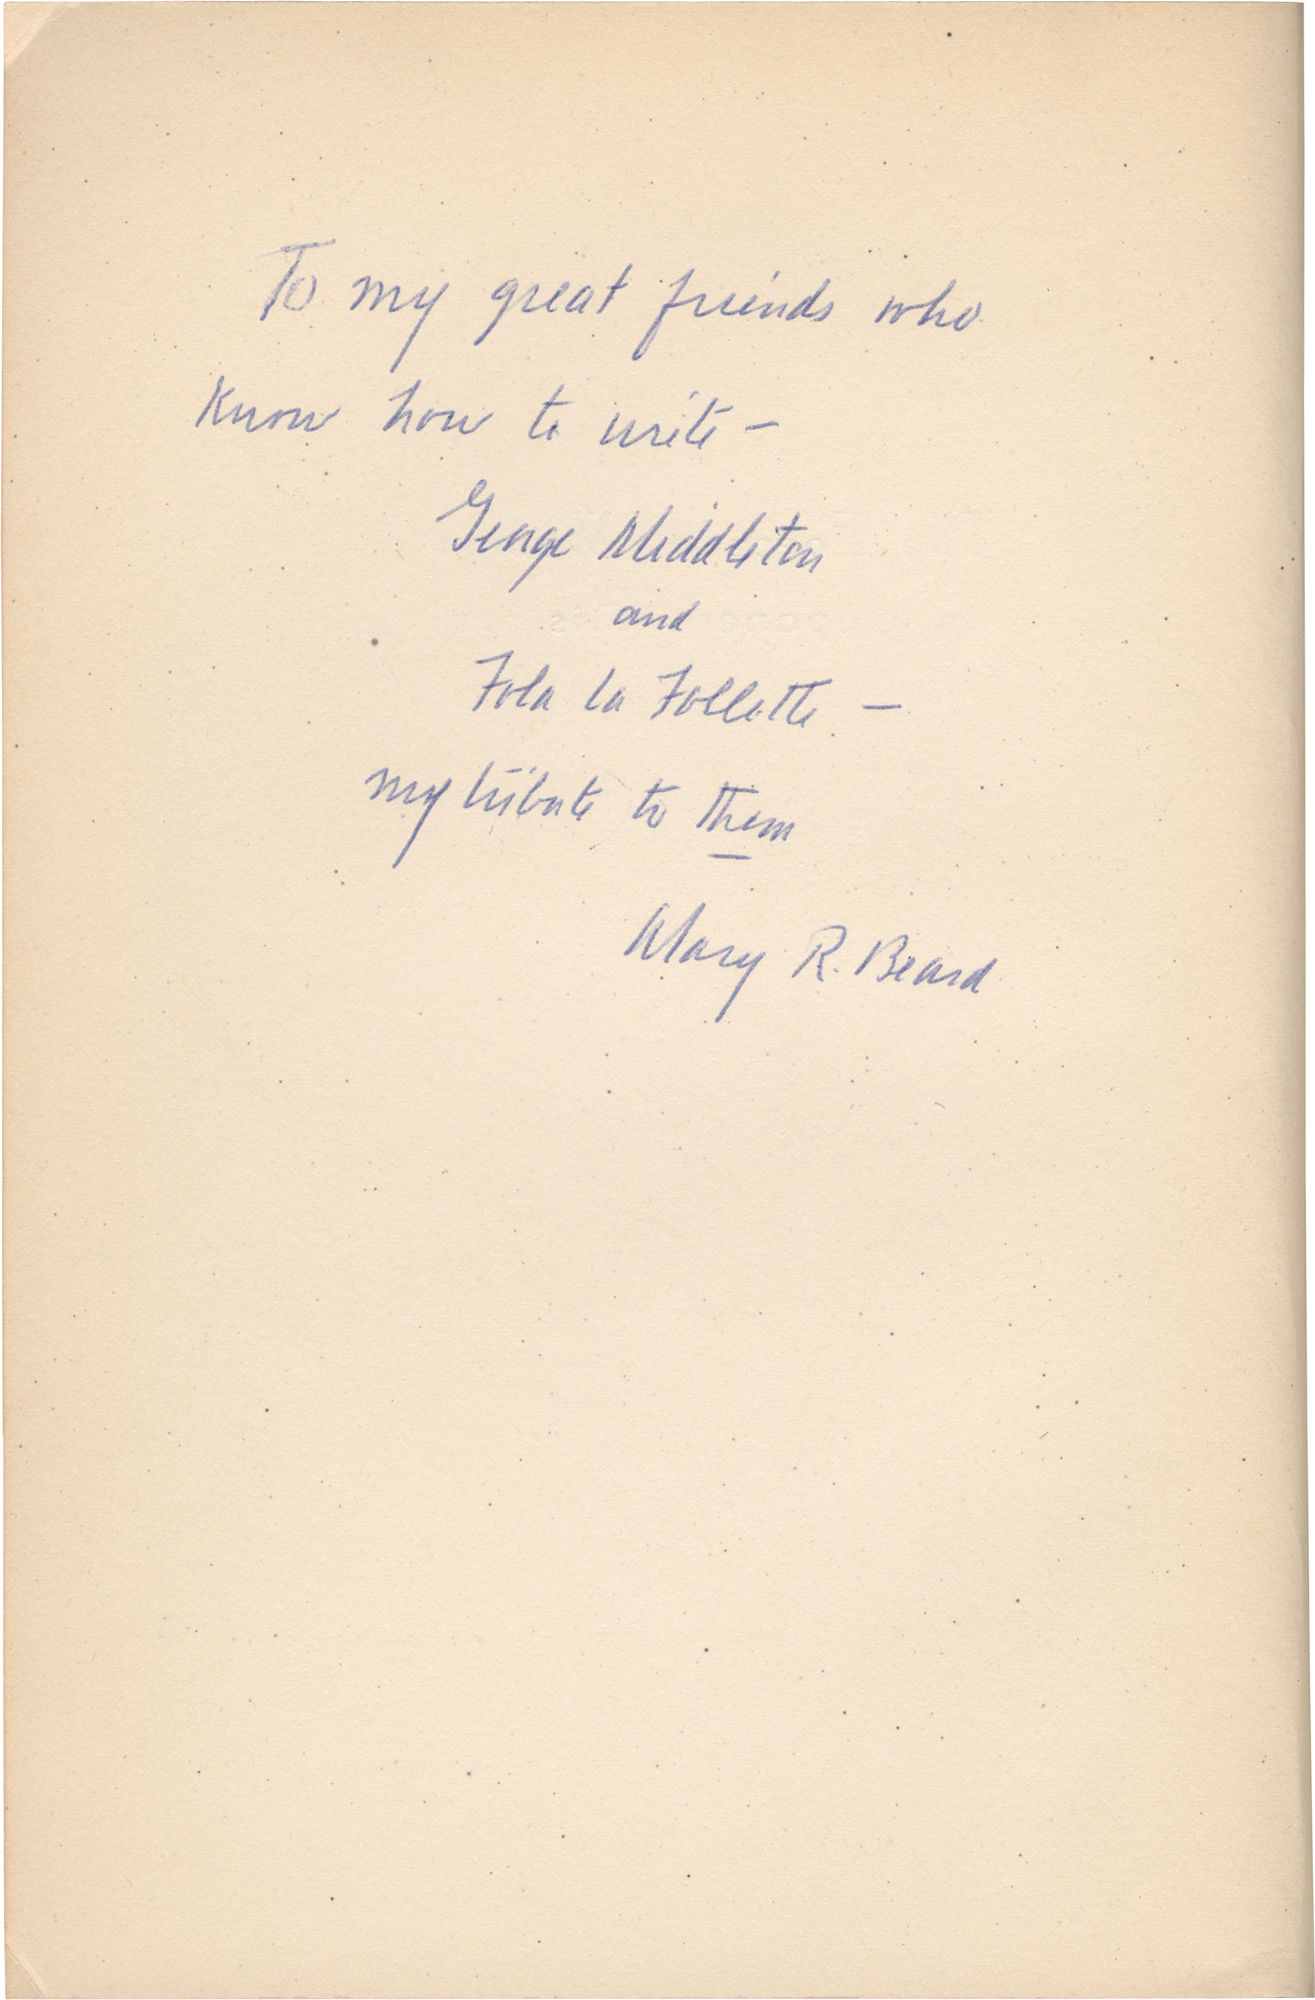 To my great friends who
know how to write –
George Middleton
and
Fola La Follette –
my tribute to them
Mary R. Beard